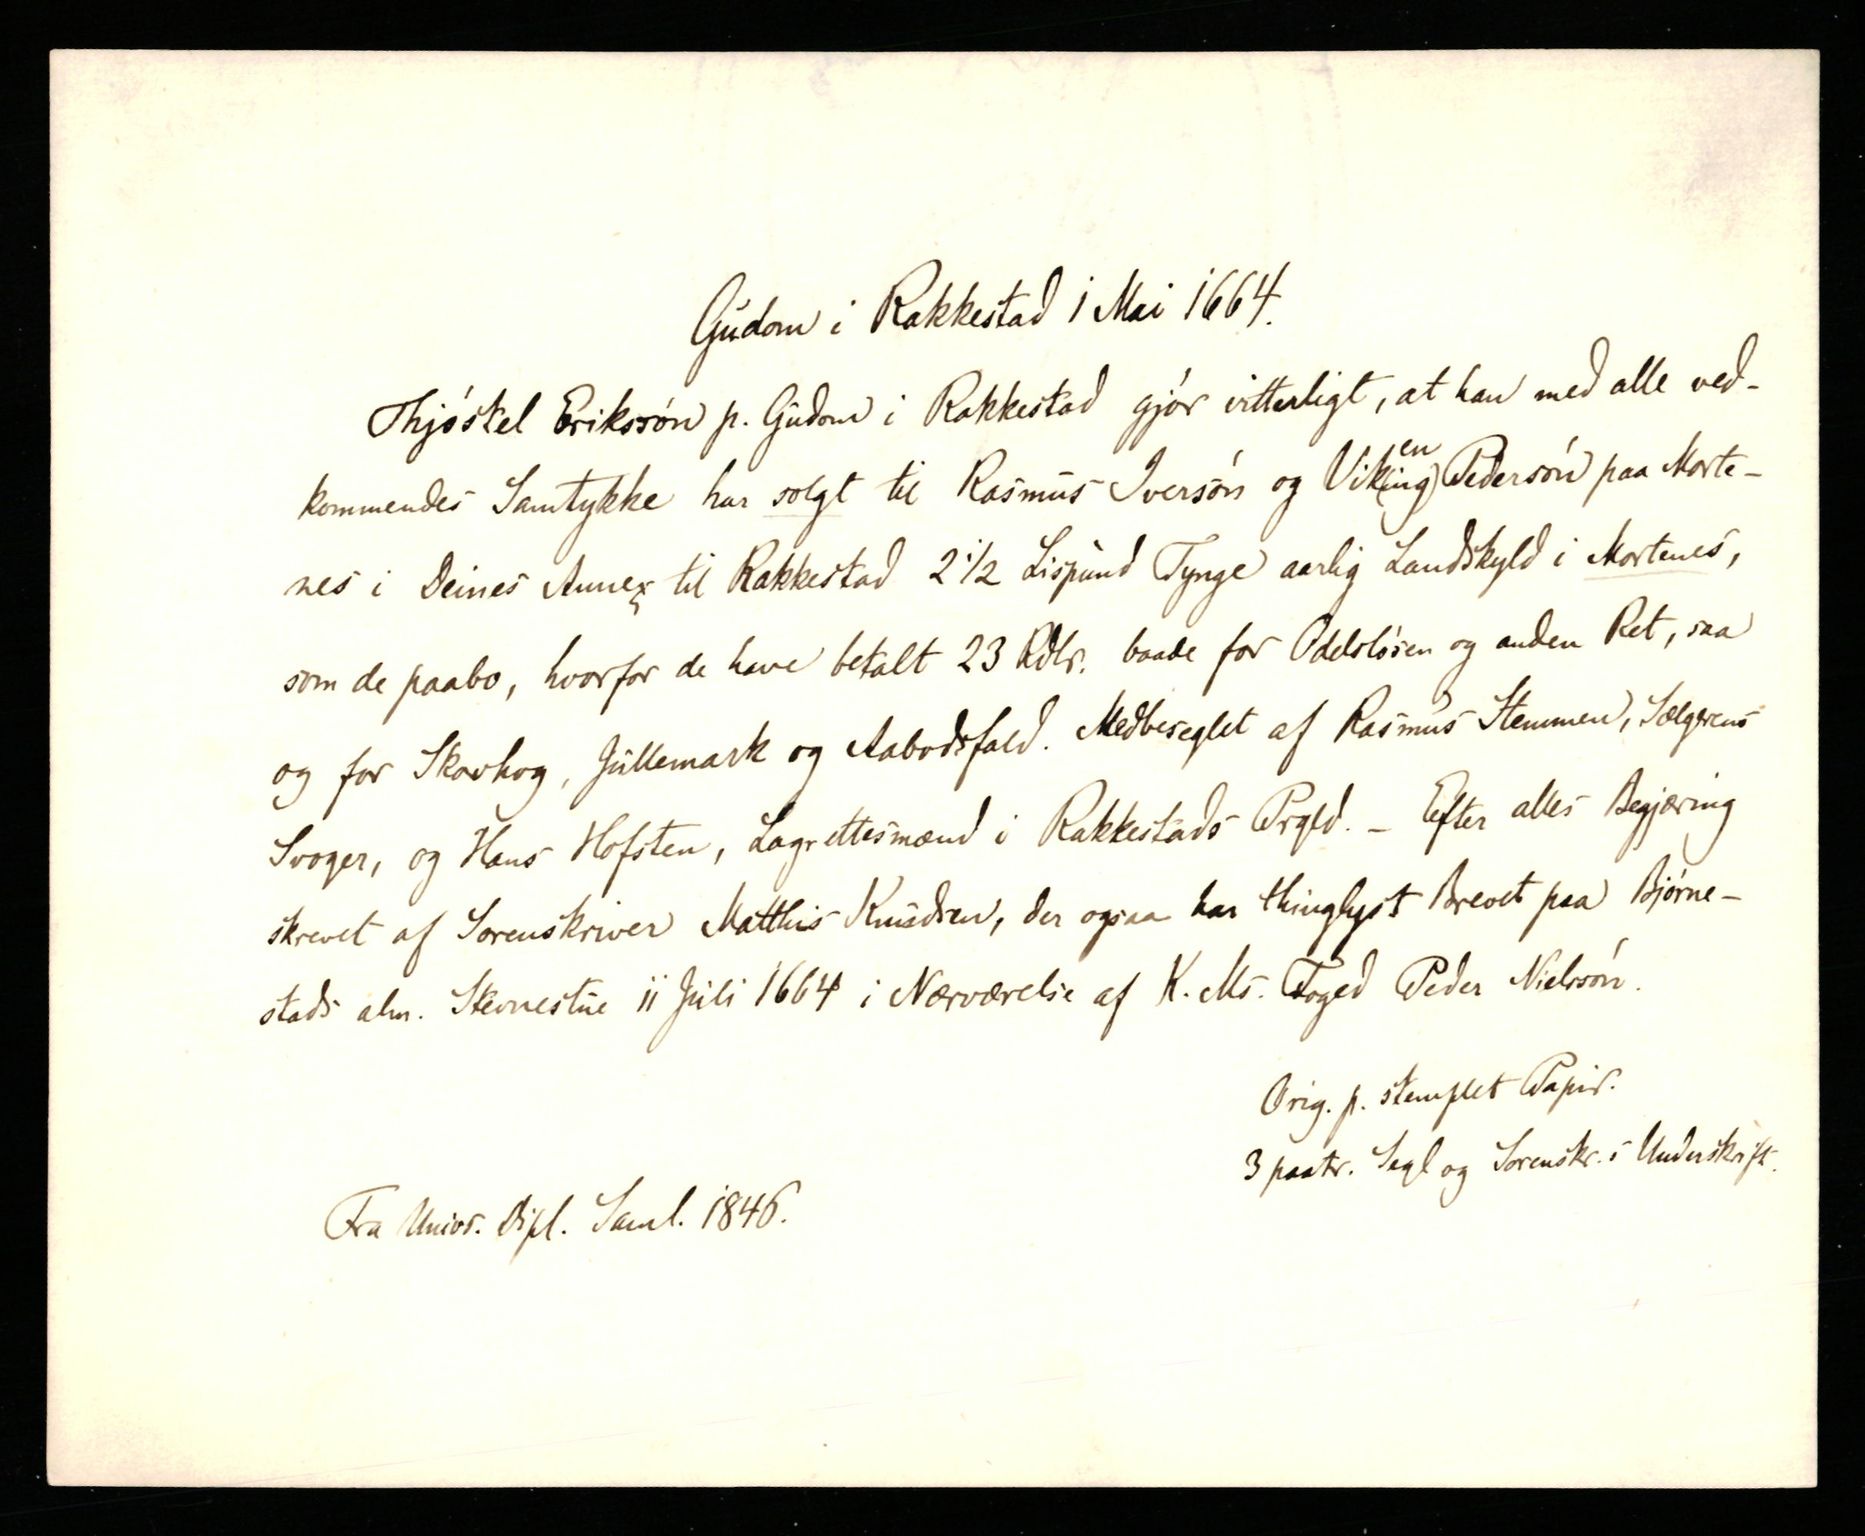 Gudom i Rakkestad 1 Mai 1664.
Thjøstel Erikssøn p. Gudom i Rakkestad gjør vitterligt, at han med alle ved-
kommendes Samtykke har solgt til Rasmus Iversøn og Vik(ing)en Pedersøn paa Morte-
nes i Deines Annex til Rakkestad 2 1/2 Lispund Tynge aarlig Landskyld i Mortenes,
som de paabo, hvorfor de have betalt 23 Rdlr. baade for Odelsløsen og anden Ret, saa
og for Skovhog, Gullemark og Aabodsfald. Medbeseglet af Rasmus Stemmen, Sælgerens
Svoger, og Hans Hofsten, Lagrettesmænd i Rakkestads Prgld. - Efter alles Begjæring
skrevet af Sorenskriver Matthis Knudsen, der ogsaa har thinglyst Brevet paa Bjørne-
stads alm. Stevnestue 11 Juli 1664 i Nærværelse af K. Ms. Foged Peder Nielssøn.
Orig. p. stemplet Papir.
3 paatr. Segl og Sorenskr.s Underskrift.
Fra Univs. Dipl. Saml. 1846.